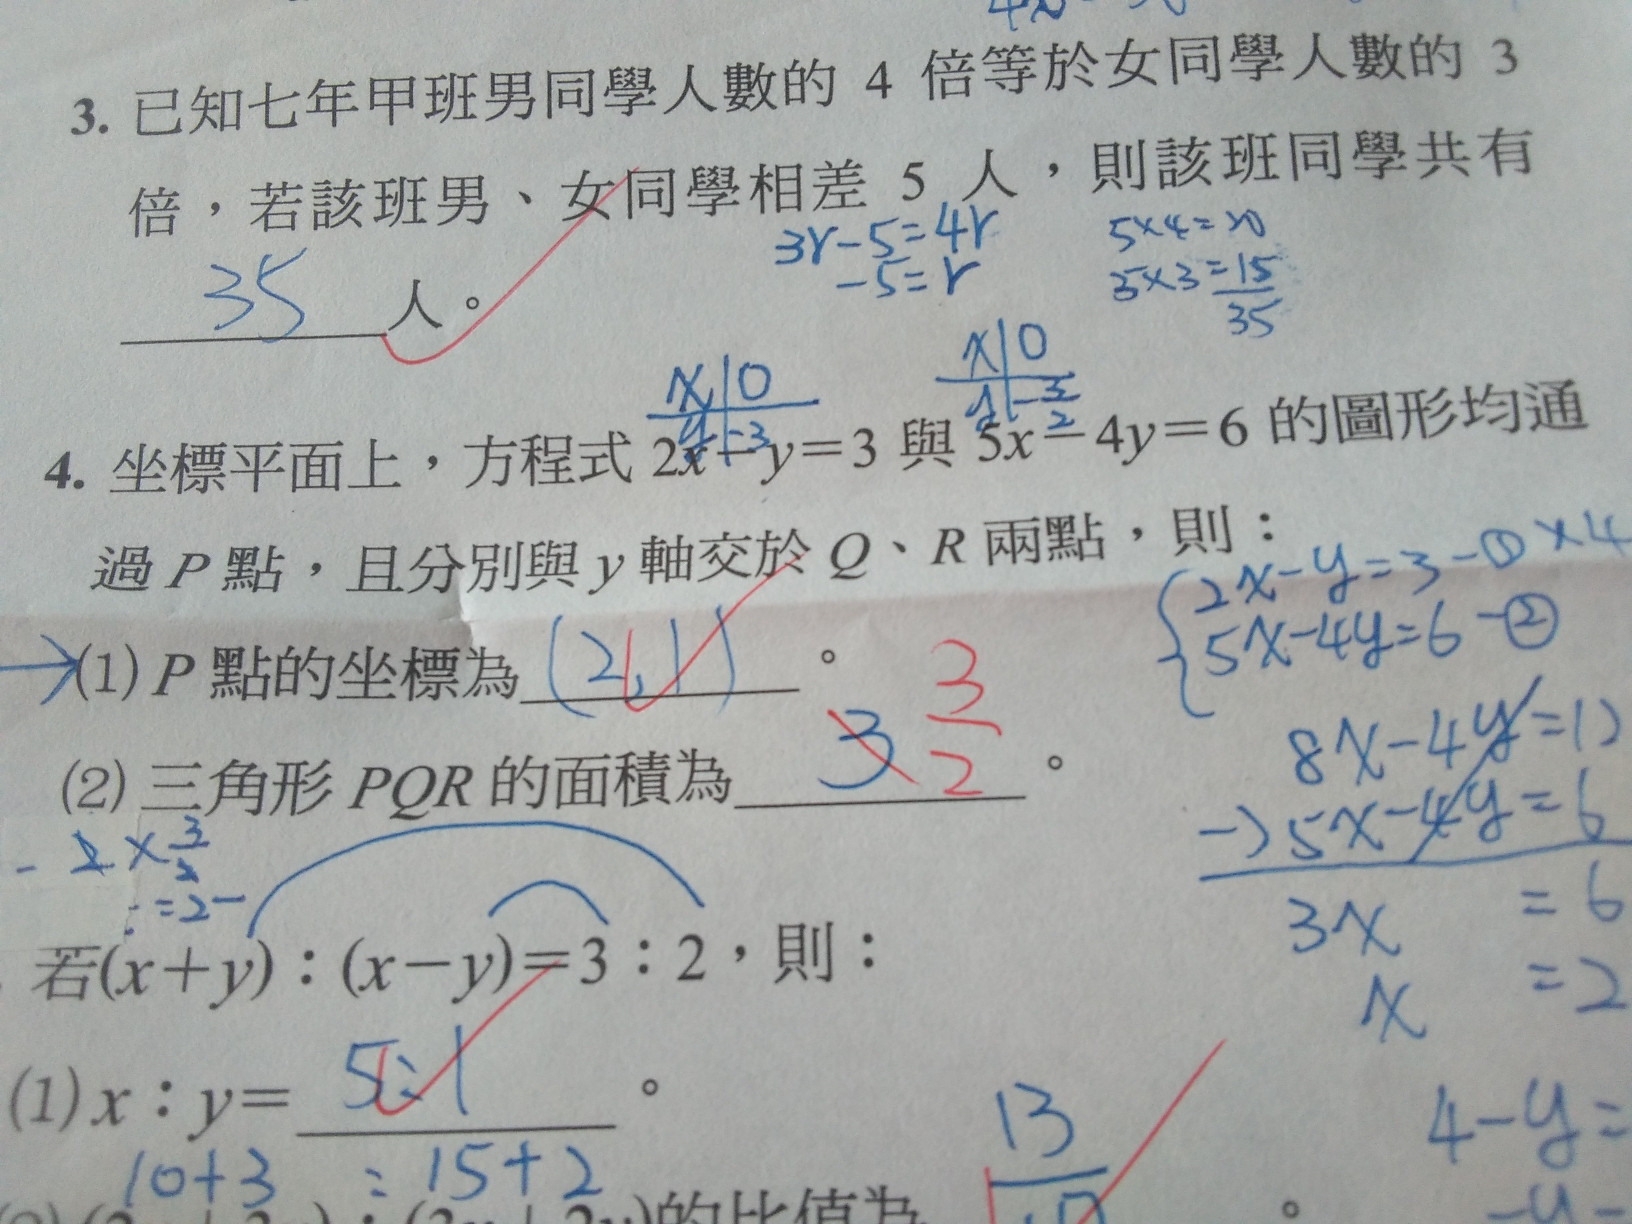 3. 已知七年甲班男同學人數的 4 倍等於女同學人數的 3
倍，若該班男、女同學相差 5 人，則該班同學共有
35 人。
3r-5=4r
-5=r
5×4=20
5×3=15
35
x|0
y|-3
x|0
y|-3/2
4. 坐標平面上，方程式 2x－y＝3 與 5x－4y＝6 的圖形均通
過 P 點，且分別與 y 軸交於 Q、R 兩點，則：
(1) P 點的坐標為 (2,1) 。
(2) 三角形 PQR 的面積為 3 3/2 。
2x-y=3-① ×4
5x-4y=6-②
8x-4y=12
-)5x-4y=6
3x =6
x =2
4-y=
-y=
若(x＋y)：(x－y)＝3：2，則：
(1) x：y＝ 5:1 。
10+3 : 15+2
13
的比值為 。